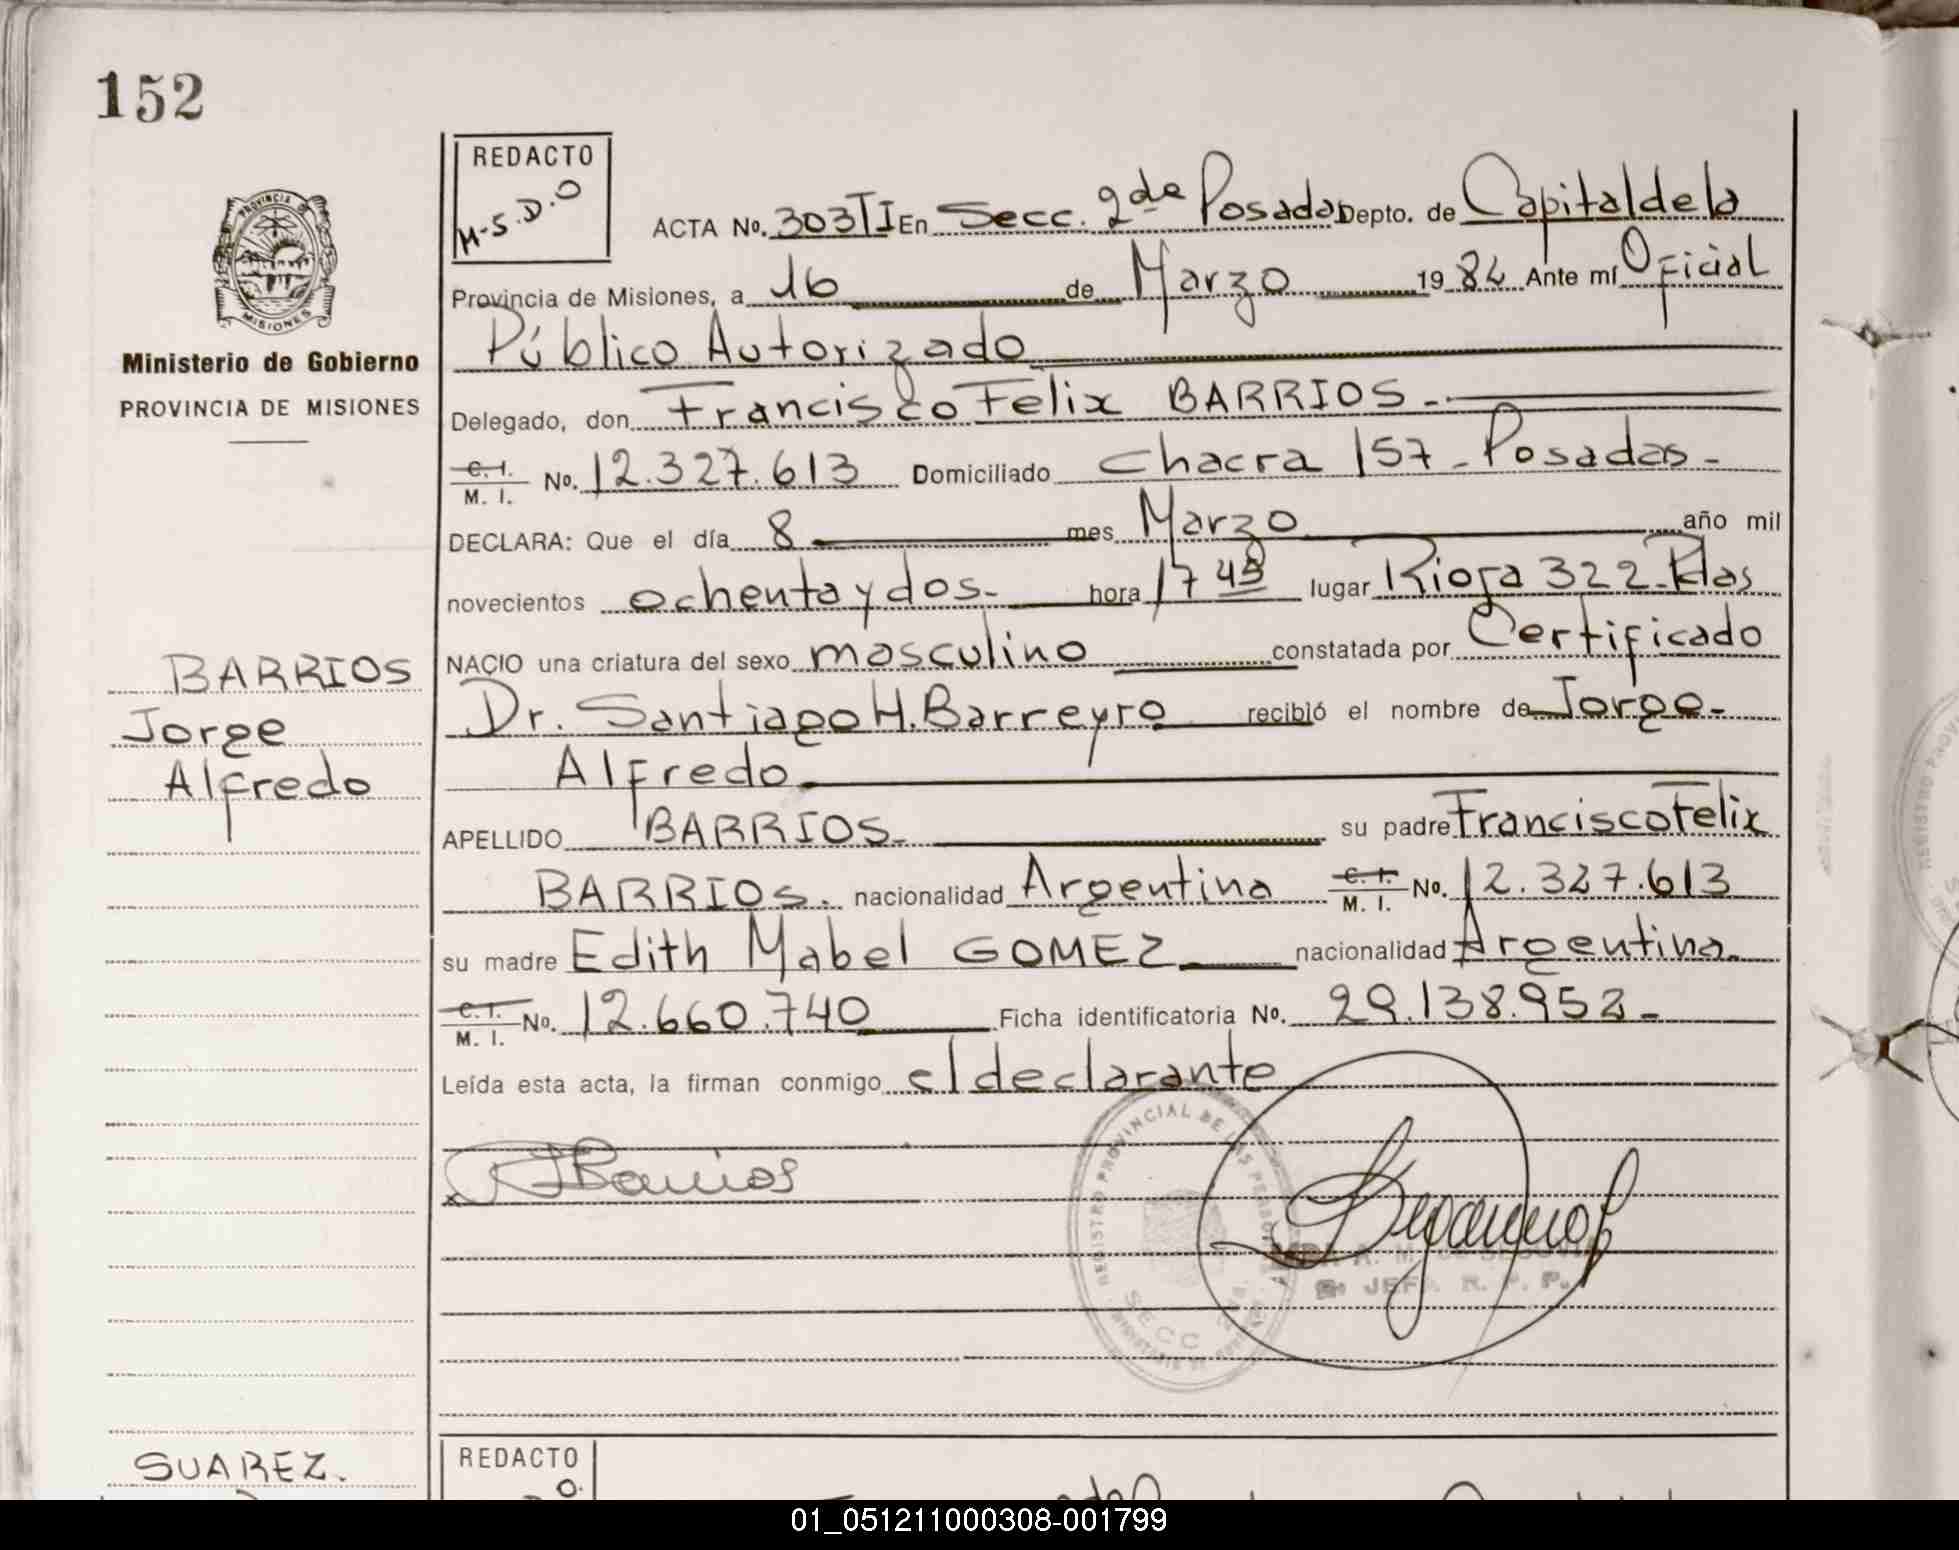 152
REDACTO
M-S.D.O
PROVINCIA
MISIONES
ACTA No. 303 TI En Secc. 2da Posadas Depto. de Capital de la
Provincia de Misiones, a 16 de Marzo 1982 Ante mí Oficial
Público Autorizado
Ministerio de Gobierno
PROVINCIA DE MISIONES
Delegado, don Francisco Felix BARRIOS.-
C. I. M. I. No. 12.327.613 Domiciliado Chacra 157 - Posadas -
DECLARA: Que el día 8 mes Marzo año mil
novecientos ochenta y dos.- hora 17 45 lugar Rioja 322 - Pdas
NACIO una criatura del sexo masculino constatada por Certificado
Dr. Santiago H. Barreyro recibió el nombre de Jorge-
Alfredo
BARRIOS
Jorge
Alfredo
APELLIDO BARRIOS.- su padre Francisco Felix
BARRIOS. nacionalidad Argentina C. I. M. I. No. 12.327.613
su madre Edith Mabel GOMEZ nacionalidad Argentina.
C. I. M. I. No. 12.660.740 Ficha identificatoria No. 29.138.952-
Leída esta acta, la firman conmigo el declarante
Barrios
REGISTRO PROVINCIAL DE LAS PERSONAS
SECC
JEFE R. P. P.
SUAREZ.
REDACTO
O.
01_051211000308-001799